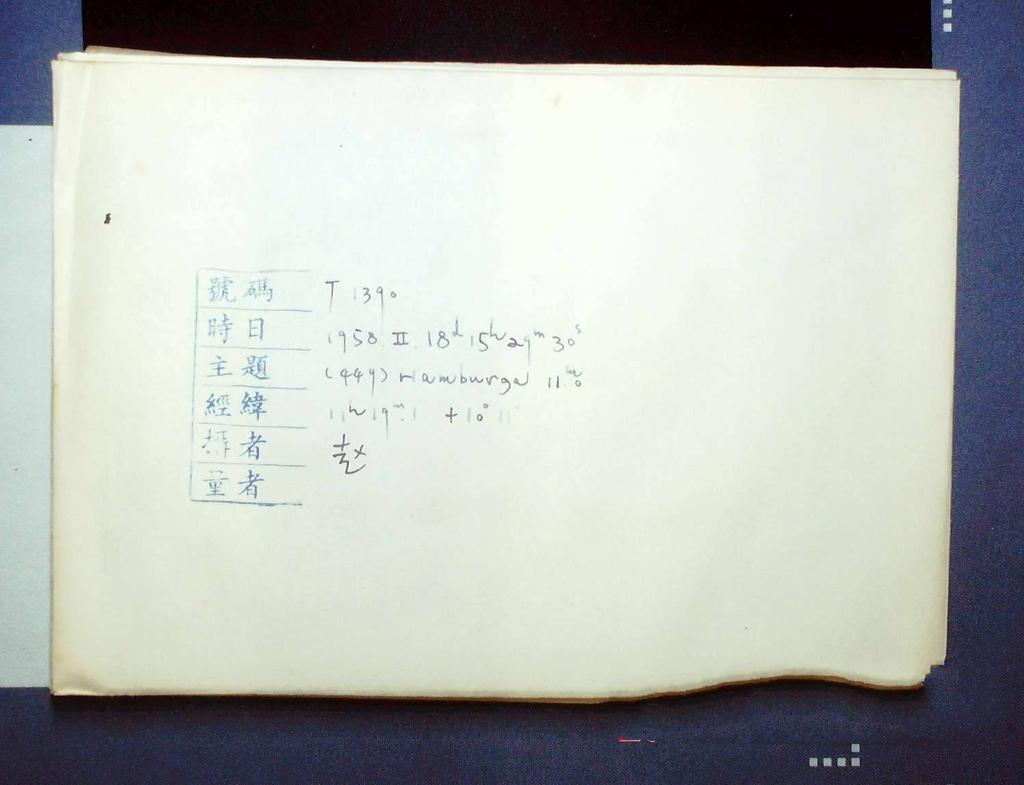 號碼 T 1390
時日 1958. II. 18d 15h 29m 30s
主題 (449) Hamburga 11m.0
經緯 11h 19m.1 +10° 11'
攝者 赵
量者